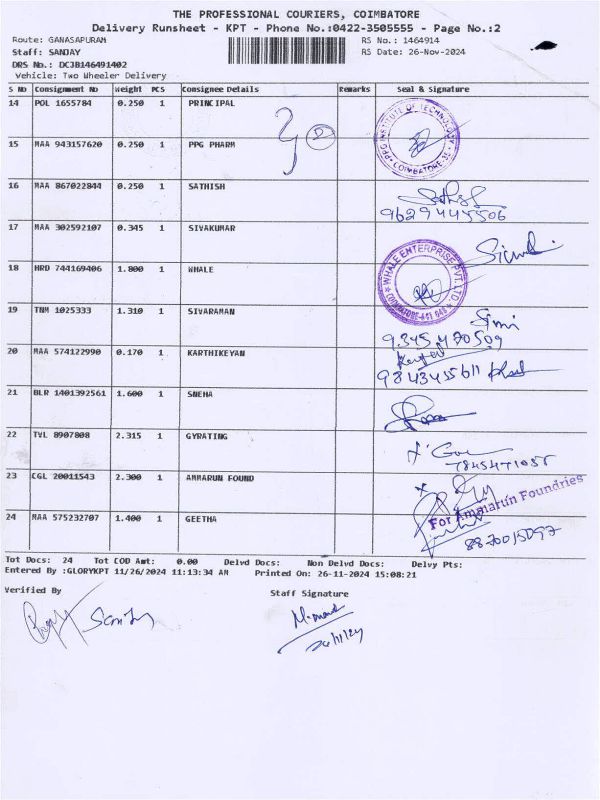 THE PROFESSIONAL COURIERS, COIMBATORE
Delivery Runsheet - KPT - Phone No.:0422-3505555 - Page No.:2
Route: GANASAPURAM RS No.: 1464914
Staff: SANJAY RS Date: 26-Nov-2024
DRS No.: DCJB146491402
Vehicle: Two Wheeler Delivery
S No Consignment No Weight PCS Consignee Details Remarks Seal & Signature
14 POL 1655784 0.250 1 PRINCIPAL
PPG INSTITUTE OF TECHNOLOGY
COIMBATORE-35
D
15 MAA 943157620 0.250 1 PPG PHARM
16 MAA 867022844 0.250 1 SATHISH
9629445506
17 MAA 302592107 0.345 1 SIVAKUMAR
18 HRD 744169406 1.800 1 WHALE
WHALE ENTERPRISE PVT. LTD
COIMBATORE-641
19 TNM 1025333 1.310 1 SIVARAMAN
9345470509
20 MAA 574122990 0.170 1 KARTHIKEYAN
9843455611
21 BLR 1401392561 1.600 1 SNEHA
22 TVL 8907808 2.315 1 GYRATING
23 CGL 20011543 2.300 1 AMMARUN FOUND
For Ammarun Foundries
24 MAA 575232707 1.400 1 GEETHA
Tot Docs: 24 Tot COD Amt: 0.00 Delvd Docs: Non Delvd Docs: Delvy Pts:
Entered By :GLORYKPT 11/26/2024 11:13:34 AM Printed On: 26-11-2024 15:08:21
Verified By Staff Signature
26/11/24